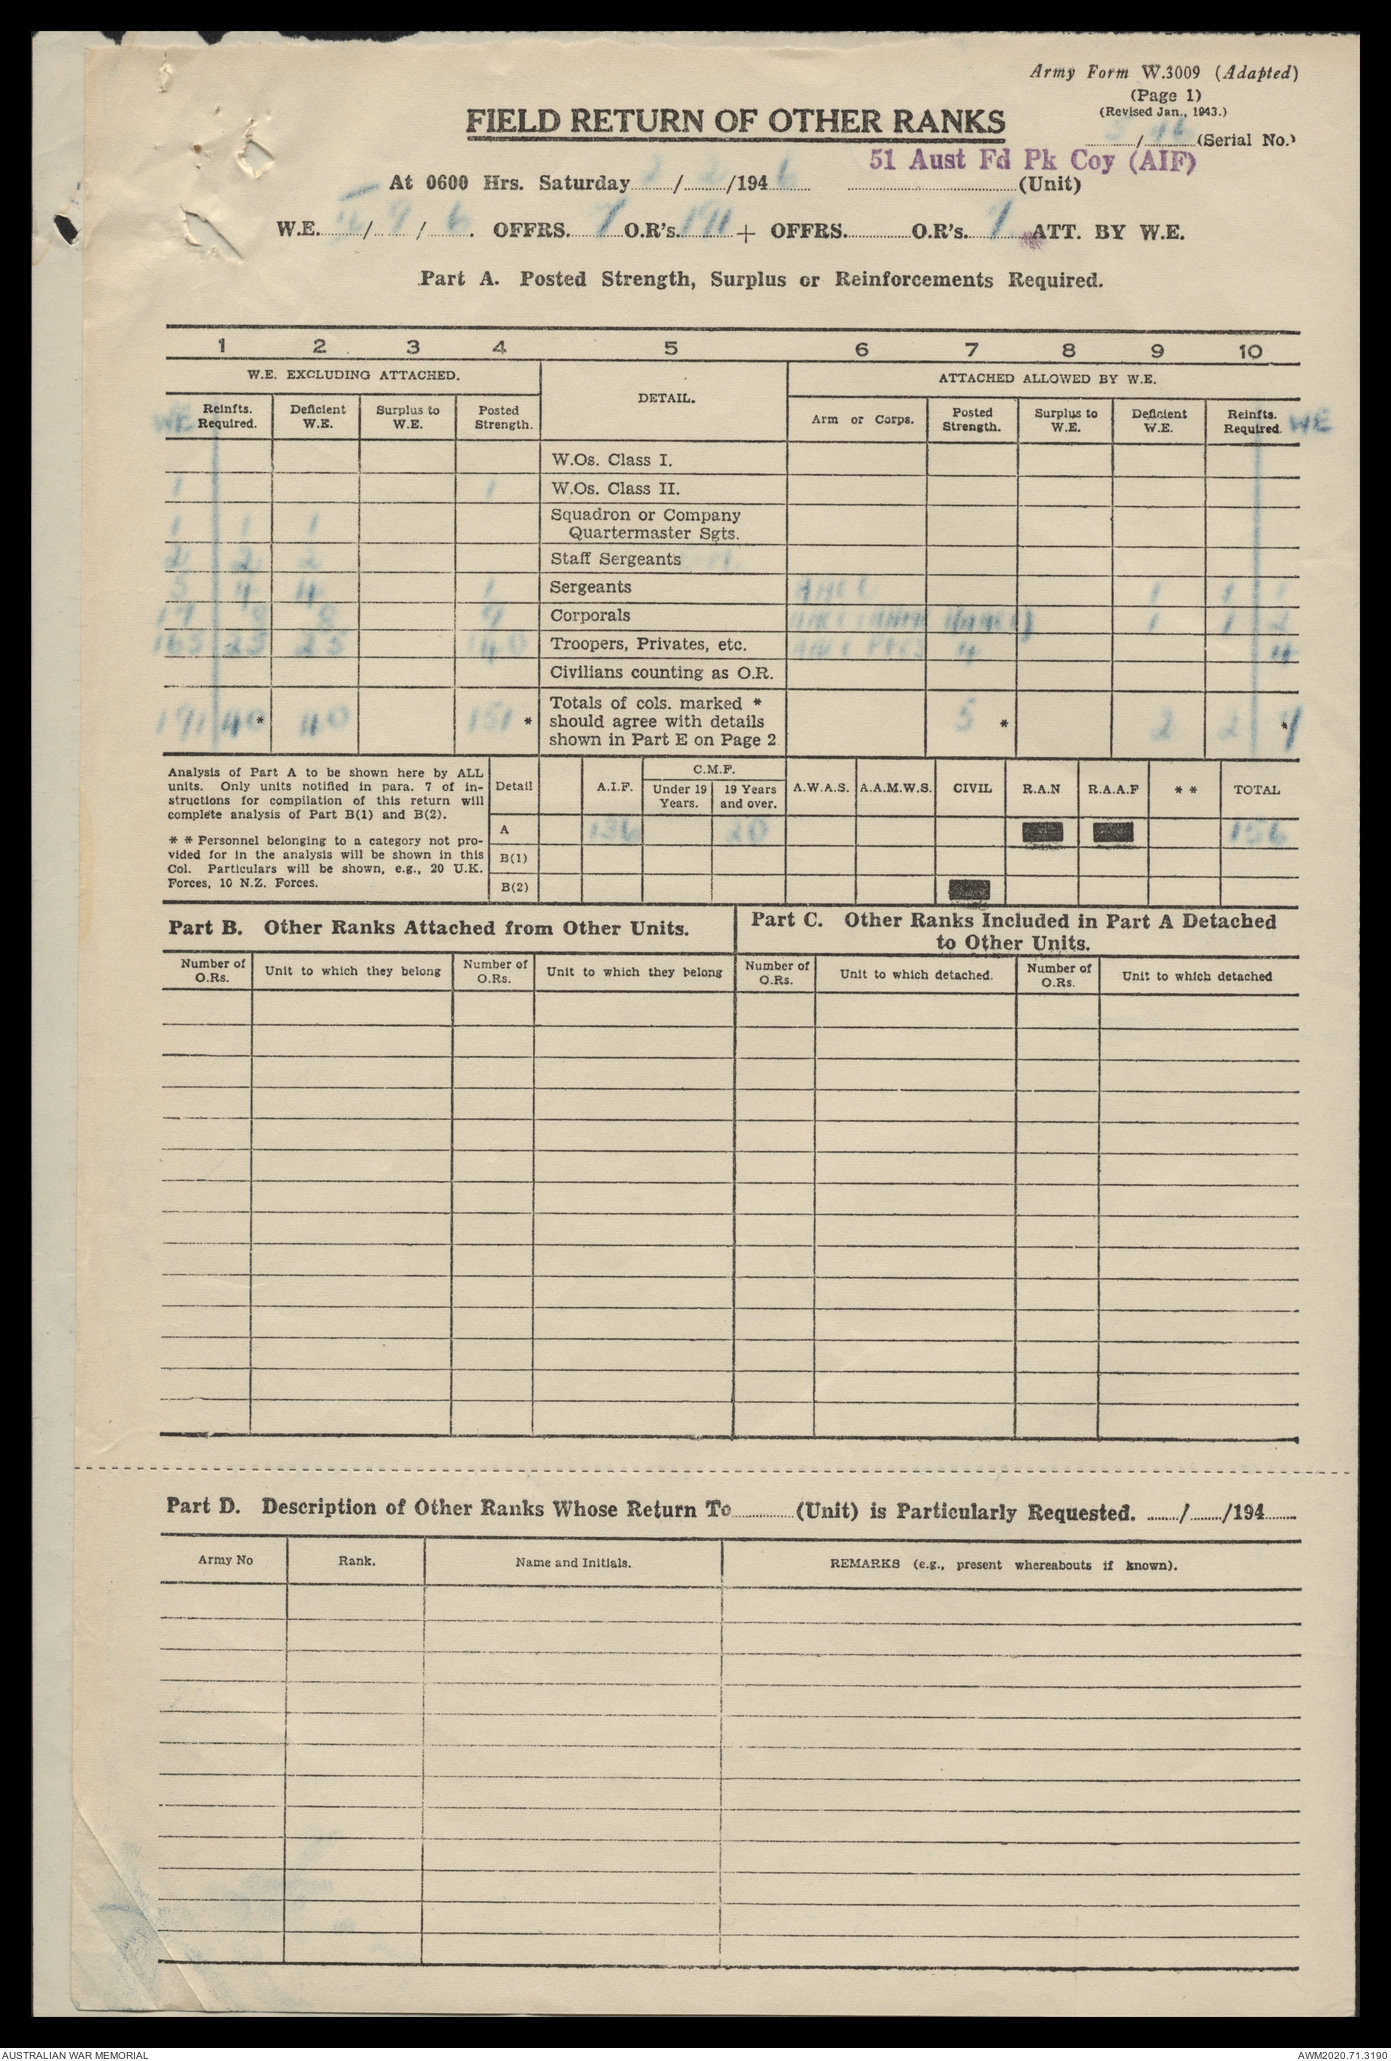 Army Form W.3009 (Adapted)
(Page 1)
(Revised Jan., 1943.)
FIELD RETURN OF OTHER RANKS
/ 46 (Serial No.)
51 Aust Fd Pk Coy (AIF)
At 0600 Hrs. Saturday 2 / 2 /194 6 (Unit)
W.E. / 9 / 6 . OFFRS. 7 O.R's. 191 + OFFRS. O.R's. 7 ATT. BY W.E.
Part A. Posted Strength, Surplus or Reinforcements Required.
1 2 3 4 5 6 7 8 9 10
W.E. EXCLUDING ATTACHED. DETAIL. ATTACHED ALLOWED BY W.E.
WE Reinfts. Required. Deficient W.E. Surplus to W.E. Posted Strength. Arm or Corps. Posted Strength. Surplus to W.E. Deficient W.E. Reinfts. Required. WE
W.Os. Class I.
1 1 W.Os. Class II.
1 1 1 Squadron or Company
Quartermaster Sgts.
2 2 2 Staff Sergeants
5 4 4 1 Sergeants AACC 1 1 1
17 8 8 9 Corporals 1 (AAMC) 1 1 2
165 25 25 140 Troopers, Privates, etc. AACC PTES 4 4
Civilians counting as O.R.
191 40* 40 151 * Totals of cols. marked *
should agree with details
shown in Part E on Page 2 5 * 2 2 * 7
Analysis of Part A to be shown here by ALL
units. Only units notified in para. 7 of in-
structions for compilation of this return will
complete analysis of Part B(1) and B(2).
* * Personnel belonging to a category not pro-
vided for in the analysis will be shown in this
Col. Particulars will be shown, e.g., 20 U.K.
Forces, 10 N.Z. Forces.
Detail A.I.F. C.M.F. A.W.A.S. A.A.M.W.S. CIVIL R.A.N R.A.A.F * * TOTAL
Under 19 Years. 19 Years and over.
A 136 20 156
B(1)
B(2)
Part B. Other Ranks Attached from Other Units.
Part C. Other Ranks Included in Part A Detached
to Other Units.
Number of O.Rs. Unit to which they belong Number of O.Rs. Unit to which they belong Number of O.Rs. Unit to which detached. Number of O.Rs. Unit to which detached
Part D. Description of Other Ranks Whose Return To (Unit) is Particularly Requested. / /194
Army No Rank. Name and Initials. REMARKS (e.g., present whereabouts if known).
AUSTRALIAN WAR MEMORIAL AWM2020.71.3190